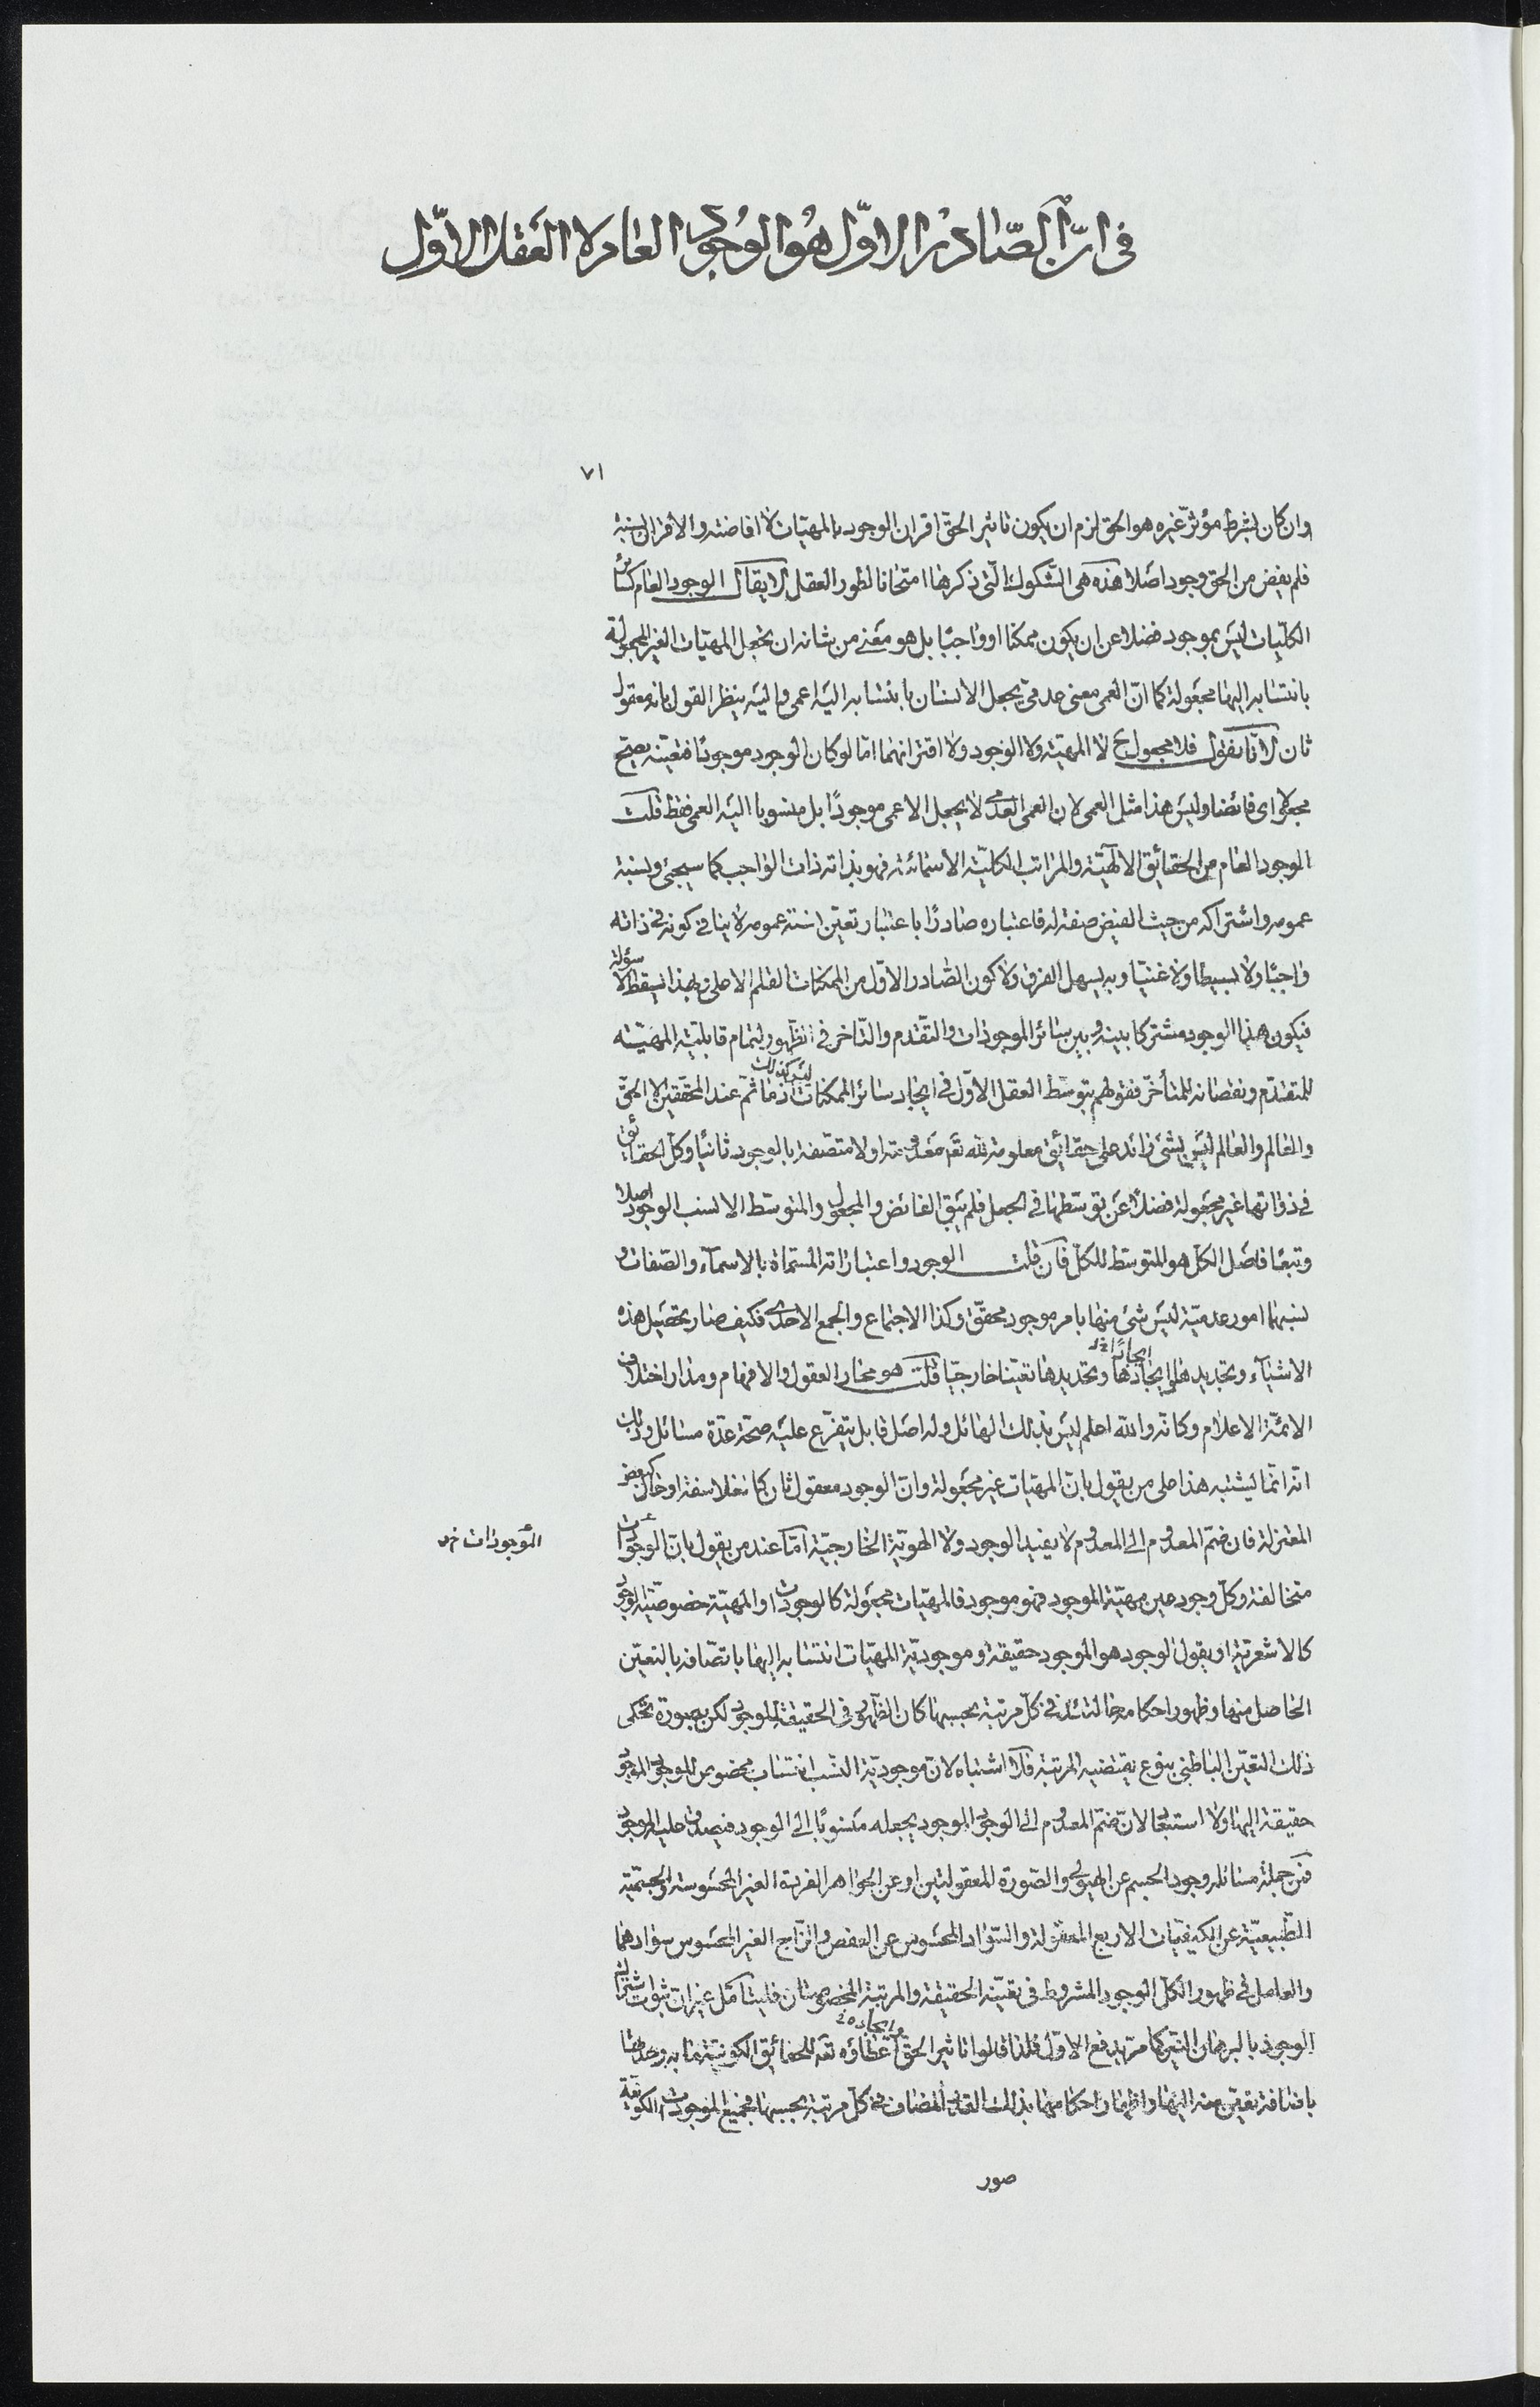 في ان الصّادر الاوّل هو الوجود العام لا العقل الاوّل
٧١
وان كان بشرط مؤثّر غيره هو الحق لزم ان يكون تاثير الحقّ اقران الوجود بالمهيّات لا افاضته والاقران نسبة
فلم يفض من الحق وجود اصلا هذه هى الشّكوك الّتى ذكرها امتحانا لطور العقل لا يقال الوجود العام كسائر
الكلّيات ليس بموجود فضلا عن ان يكون ممكنا او واجبًا بل هو معنى من شانه ان يجعل المهيّات الغير المجعولة
بانتسابه اليها مجعولة كما انّ العمى معنى عدمىّ يجعل الانسان بانتسابه اليه اعمى واليه ينظر القول بانه معقول
ثان لانّا نقول فلا مجعول ح لا المهيّة ولا الوجود ولا اقترانهما امّا لو كان الوجود موجودًا فتعيّنه يصحّ
مجعولا اى فائضا وليس هذا مثل العمى لان العمى العدمى لا يجعل الاعمى موجودًا بل منسوبا اليه العمى فقط قلت
الوجود العام من الحقائق الالهيّة والمراتب الكليّة الاسمائية فهو بذاته ذات الواجب كما سيجئ ونسبة
عمومه واشتراكه من حيث الفيض صفة له فاعتباره صادرًا باعتبار تعيّن نسبة عمومه لا ينافى كونه فى ذاته
واجبًا ولا بسيطا ولا غنيّا وبه يسهل الفرق ولا كون الصّادر الاوّل من الممكنات القلم الاعلى وبهذا يسقط الاسؤلة
فيكون هذا الوجود مشتركا بينه وبين سائر الموجودات والتقدم والتاخر فى الظهور لتمام قابليّة المهيّة
للمتقدّم ونقصانه للمتأخّر فقولهم بتوسّط العقل الاوّل فى ايجاد سائر الممكنات ليس كذلك اذ ما ثمّ عند المحقّقين الا الحقّ
والعالم والعالم ليس بشئ زائد على حقائق معلومة لله تع معدومة اولا متصفة بالوجود ثانيًا وكلّ الحقائق
فى ذواتها غير مجعولة فضلا عن توسّطها فى الجعل فلم يبق الفائض والمجعول والمتوسّط الا نسب الوجود اصلا
وتبعًا فاصل الكل هو المتوسّط للكلّ فان قلت الوجود واعتباراته المسمّاة بالاسماء والصّفات و
نسبها امور عدميّة ليس شئ منها بامر موجود محقّق وكذا الاجتماع والجمع الاحدى فكيف صار بتحصيل هذه
الاشياء وتجديدها ايجادها وتحديدها تعيّنا خارجيّا قلت هو محار العقول والافهام ومدار اختلاف
الائمّة الاعلام وكانّه والله اعلم ليس بذلك الهائل وله اصل قابل يتفرّع عليه صحّة عدّة مسائل وذلك
انّه انّما يشتبه هذا على من يقول بانّ المهيّات غير مجعولة وانّ الوجود معقول ثان كالفلاسفة او حال كبعض
المعتزلة فان ضمّ المعدوم الى المعدوم لا يفيد الوجود ولا الهويّة الخارجيّة امّا عند من يقول بانّ الوجودات
الموجودات خ ل
متخالفة وكلّ وجود عين مهيّة الموجود فهو موجود فالمهيّات مجعولة كالوجودات او المهيّة خصوصيّة الوجود
كالاشعريّة او يقول الوجود هو الموجود حقيقة وموجوديّة المهيّات انتسابه اليها باتّصافه بالتعيّن
الحاصل منها وظهور احكامها فى كلّ مرتبة بحسبها كان الظّهور فى الحقيقة للوجود لكن بصورة تحكى
ذلك التعيّن الباطنى بنوع يقتضيه المرتبة فلا اشتباه لانّ موجوديّة النّسب انتساب مخصوص للوجود الموجود
حقيقة اليها ولا استبعاد لانّ ضمّ المعدوم الى الوجود الموجود يجعله منسوبًا الى الوجود فيصدق عليه الموجود
فمن جملة مسائله وجود الجسم عن الهيولى والصّورة المعقولتين او عن الجواهر الفردة الغير المحسوسة والجسميّة
الطّبيعيّة عن الكيفيّات الاربع المعقولة والسّواد المحسوس عن العفص والزّاج الغير المحسوس سوادهما
والعامل فى ظهور الكل الوجود المشروط فى تعيّنه الحقيقة والمرتبة المخصوصتان فليتامّل غير ان ثبوت اشتراك
الوجود بالبرهان النيّر كما مرّ يدفع الاوّل فلذا قالوا تاثير الحقّ وايجاده اعطاؤه تع للحقائق الكونيّة ما به وجدها
باضافة تعيّن منه اليها واظهار احكامها بذلك المضاف فى كلّ مرتبة بحسبها فجميع الموجودات الكونيّة
صور